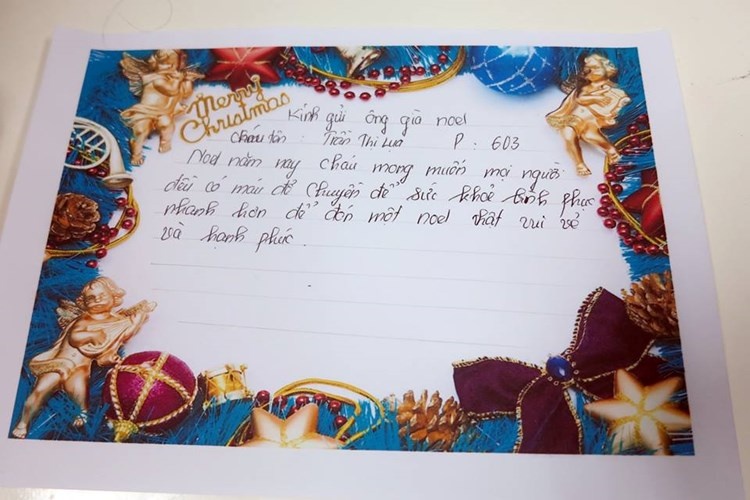 Merry
Christmas
Kính gửi ông già noel
Cháu tên : Trần Thị Lụa P : 603
Noel năm nay cháu mong muốn mọi người
đều có máu để chuyền để sức khoẻ bình phục
nhanh hơn để đón một noel thật vui vẻ
và hạnh phúc.